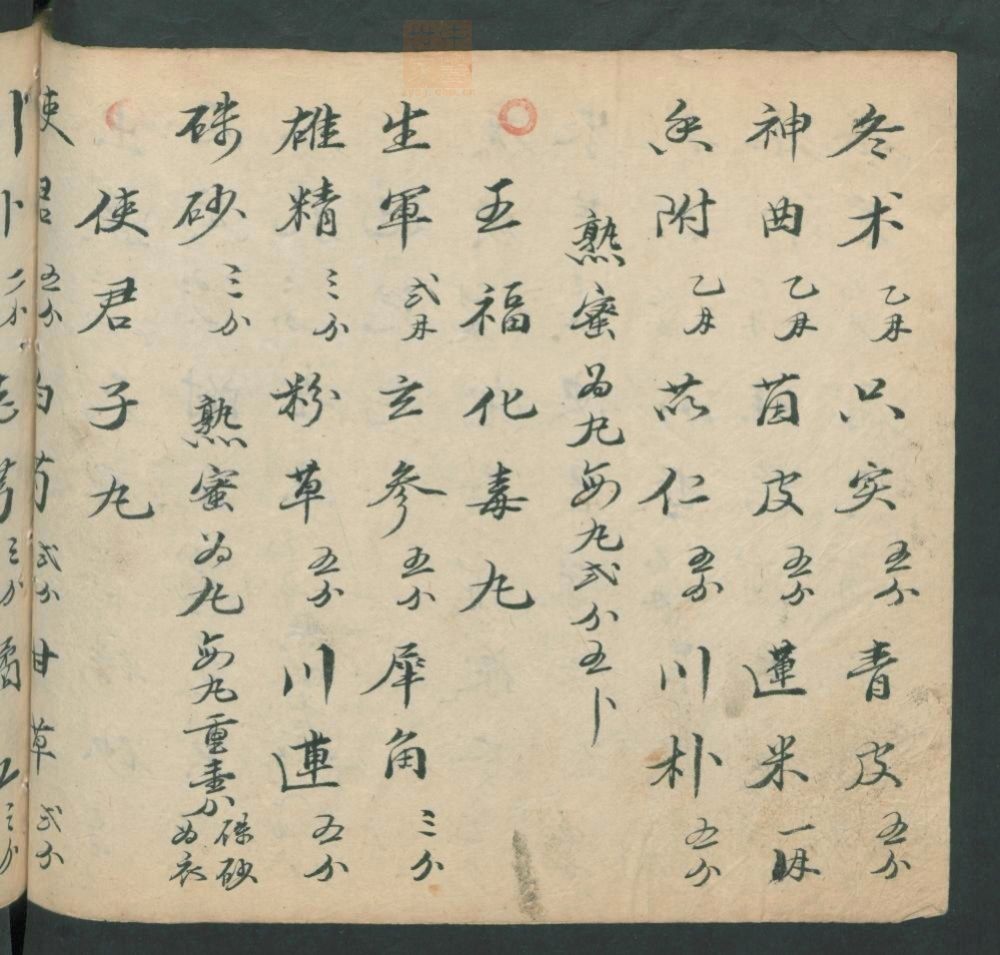 冬术 乙两 只实 五分 青皮 五分
神曲 乙两 苗皮 五分 蓮米 一两
香附 乙两 苡仁 五分 川朴 五分
熟蜜為丸每丸弍分五卜
○ 五福化毒丸
生軍 弍两 玄參 五分 犀角 三分
雄精 三分 粉草 五分 川連 五分
硃砂 三分 熟蜜為丸每丸重壹分 硃砂為衣
使君子丸
使君 五分 芍 弍分 甘草 弍分